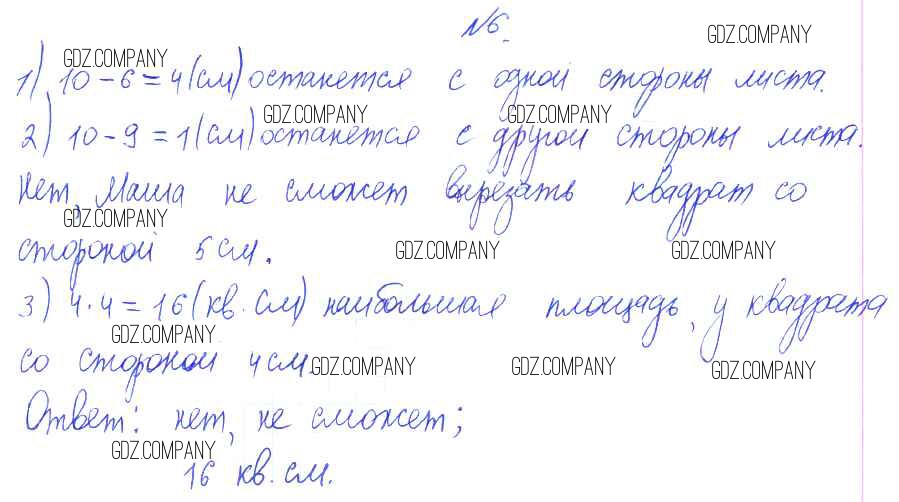 №6.
GDZ.COMPANY
GDZ.COMPANY
1) 10 - 6 = 4 (см) останется с одной стороны листа.
GDZ.COMPANY GDZ.COMPANY
2) 10 - 9 = 1 (см) останется с другой стороны листа.
Нет, Маша не сможет вырезать квадрат со
GDZ.COMPANY
стороной 5 см.
GDZ.COMPANY GDZ.COMPANY
3) 4 · 4 = 16 (кв. см) наибольшая площадь, у квадрата
GDZ.COMPANY
со стороной 4 см.
GDZ.COMPANY GDZ.COMPANY GDZ.COMPANY
Ответ: нет, не сможет;
GDZ.COMPANY
16 кв. см.